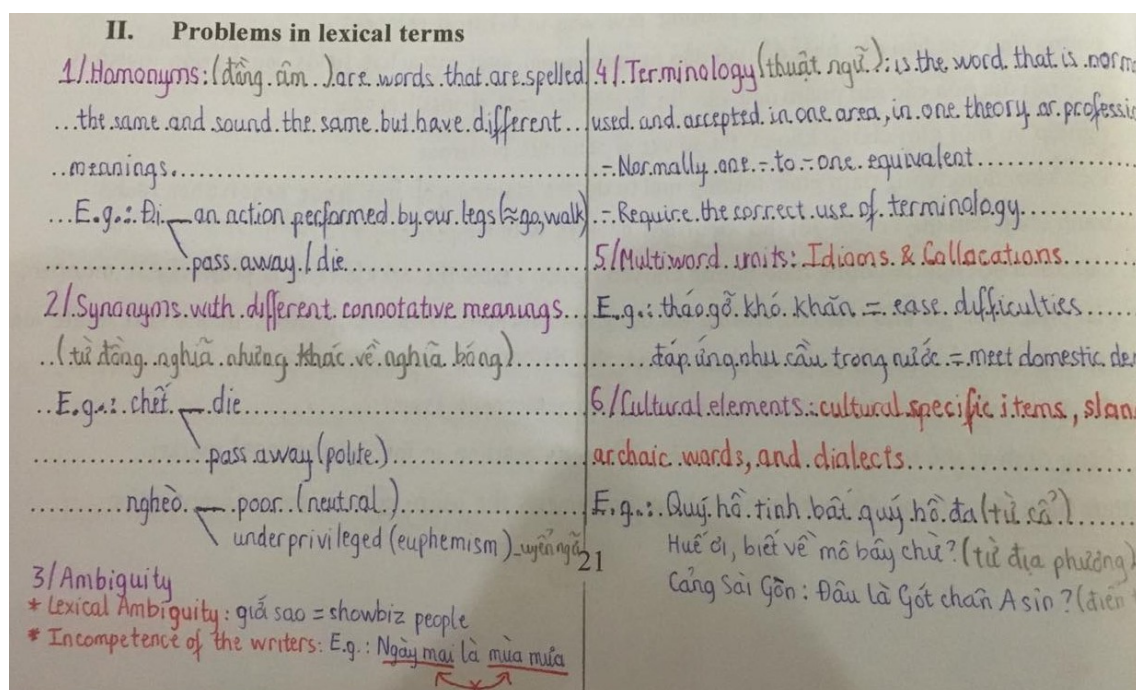 II. Problems in lexical terms
1/. Homonyms: (đồng âm) are words that are spelled
the same and sound the same but have different
meanings.
E.g.: Đi — an action performed by our legs (≈ go, walk)
pass away / die
2/. Synonyms with different connotative meanings
(từ đồng nghĩa nhưng khác về nghĩa bóng)
E.g.: chết — die
pass away (polite)
nghèo — poor (neutral)
underprivileged (euphemism) _uyển ngữ
3/ Ambiguity
* Lexical Ambiguity: giá sao = showbiz people
* Incompetence of the writers: E.g.: Ngày mai là mùa mưa
4/. Terminology (thuật ngữ): is the word that is norm
used and accepted in one area, in one theory or professi
- Normally one - to - one equivalent
- Require the correct use of terminology
5/ Multiword units: Idioms & Collocations
E.g.: tháo gỡ khó khăn = ease difficulties
đáp ứng nhu cầu trong nước = meet domestic de
6/ Cultural elements: cultural specific items, slan
archaic words, and dialects
E.g.: Quý hồ tinh bất quý hồ đa (từ cổ)
Huế ơi, biết về mô bây chừ? (từ địa phương)
Cảng Sài Gòn: Đâu là Gót chân Asin? (điển
21